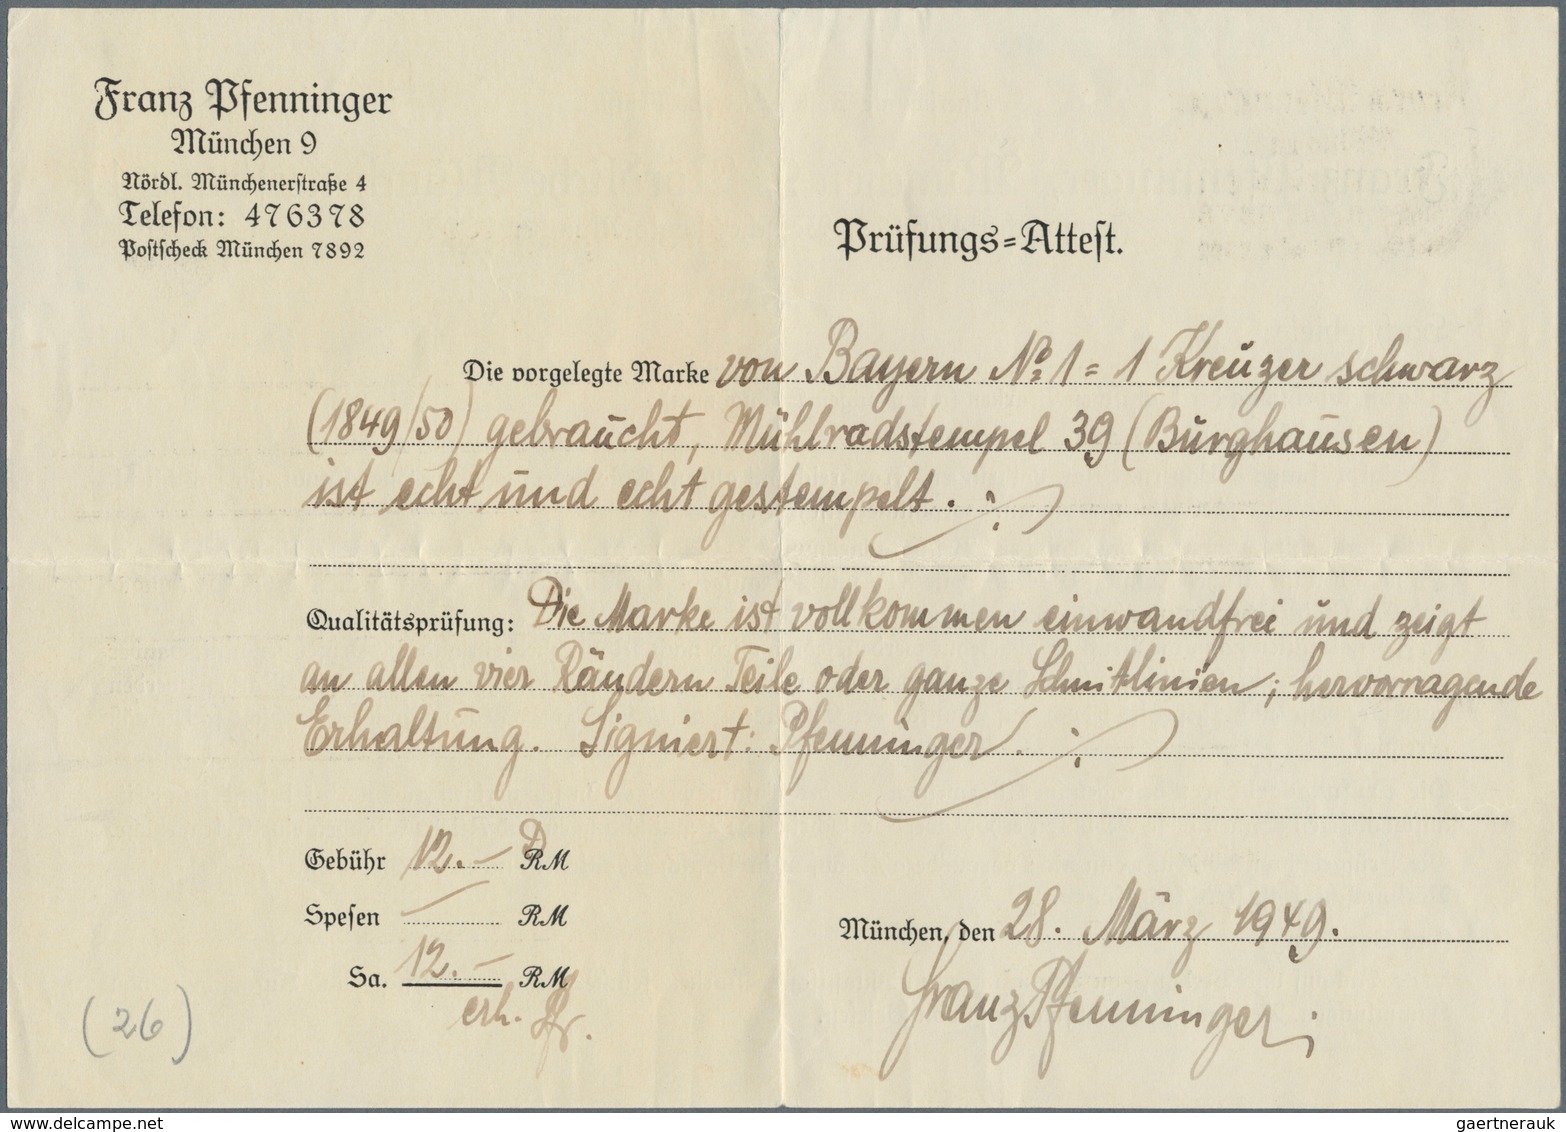 Franz Pfenninger
München 9
Nördl. Münchenerstraße 4
Telefon: 476378
Postscheck München 7892
Prüfungs=Attest.
Die vorgelegte Marke von Bayern No. 1 = 1 Kreuzer schwarz
(1849/50) gebraucht, Mühlradstempel 39 (Burghausen)
ist echt und echt gestempelt.
Qualitätsprüfung: Die Marke ist vollkommen einwandfrei und zeigt
an allen vier Rändern Teile oder ganze Schnittlinien; hervorragende
Erhaltung. Signiert: Pfenninger.
Gebühr 12.– DRM
Spesen – RM
Sa. 12.– RM
erh. Pf.
München, den 28. März 1949.
Franz Pfenninger
(26)
www.delcampe.net
gaertnerauk